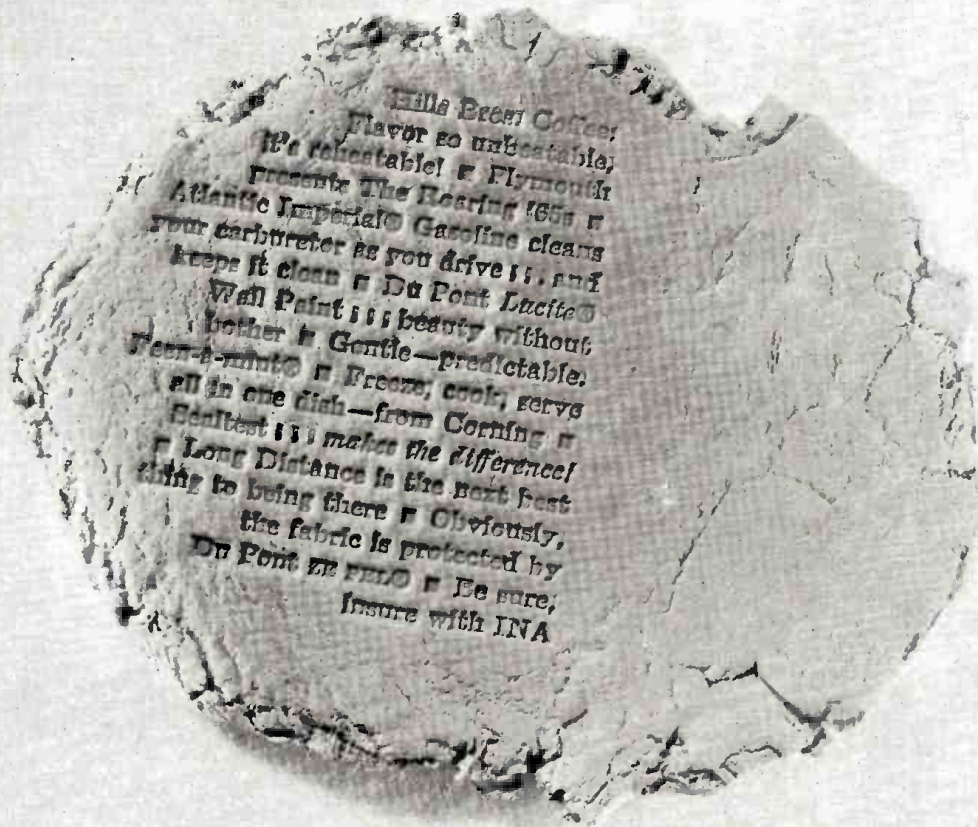 Hills Bros! Coffee;
Flavor so unbeatable,
it's reheatable! ■ Plymouth
presents The Roaring '65s ■
Atlantic Imperial® Gasoline cleans
your carburetor as you drive . . . and
keeps it clean ■ Du Pont Lucite®
Wall Paint . . . beauty without
bother ■ Gentle—predictable.
Feen-a-mint® ■ Freeze, cook, serve
all in one dish—from Corning ■
Sealtest . . . makes the difference!
■ Long Distance is the next best
thing to being there ■ Obviously,
the fabric is protected by
Du Pont ZE PEL® ■ Be sure,
insure with INA